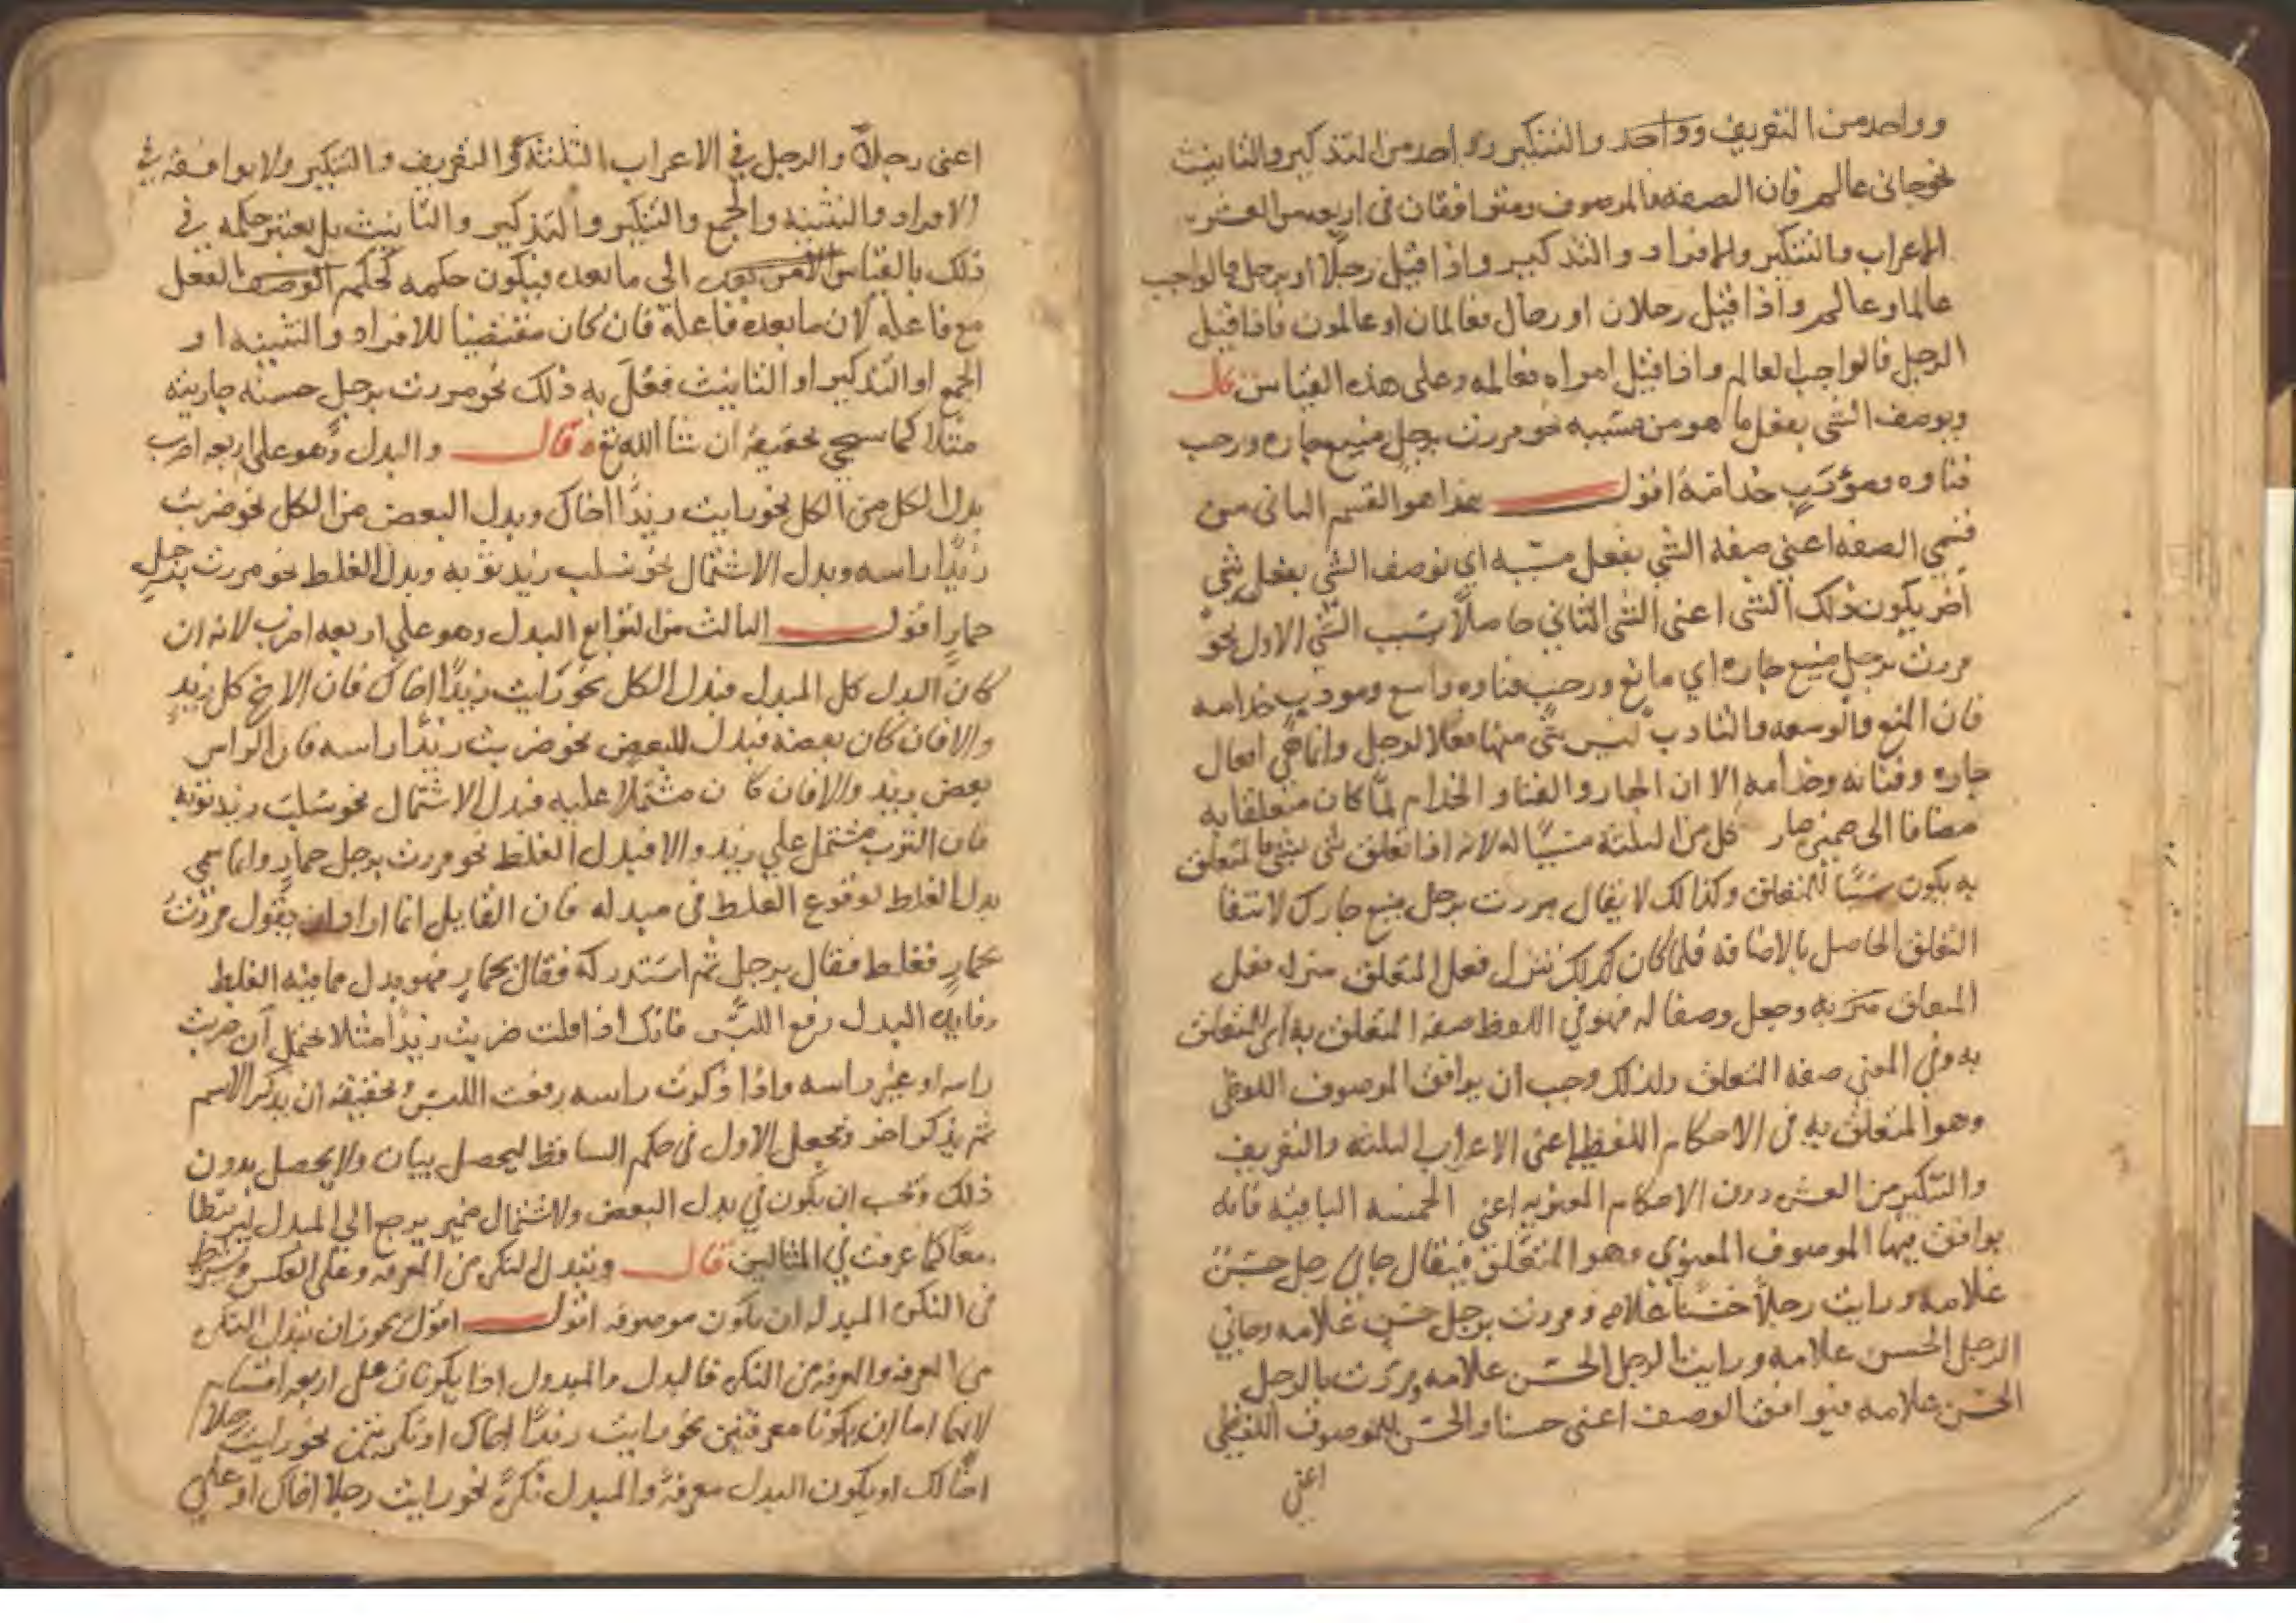 وواحد من التعريف وواحد والتنكير وواحد من التذكير والتانيث
نحو جانى عالم فان الصفه والموصوف متوافقان فى اربعه من العشره
الاعراب والتنكير والافراد والتذكير واذا قيل رجلا او برجل فالواجب
عالما وعالم واذا قيل رجلان او رجال فعالمان او عالمون فاذا قيل
الرجل فالواجب العالم واذا قيل امراه فعالمه وعلى هذه القياس قال
ويوصف الشى بفعل ما هو من مسببه نحو مررت برجل منيع جاره ورحب
فناوه ومؤدب خدامه اقول هذا هو القسم الثانى من
قسمي الصفه اعني صفه الشي بفعل مسببه اي توصف الشي بفعل شي
اخر يكون ذلك الشى اعنى الشى الثاني حاصلا بسبب الشي الاول نحو
مررت برجل منيع جاره اي مانع ورحب فناوه واسع ومودب خدامه
فان المنع والوسعه والتادب ليس شى منها فعلا لرجل وانما هي افعال
جاره وفنائه وخدامه الا ان الجار والفنا والخدام لما كان متعلقا به
مضافا الى ضميره صار كل من الثلثه مسببا له لانه اذا تعلق شى بشى فالمتعلق
به يكون سببا للمتعلق وكذالك لا يقال مررت برجل منيع جارك لانتفا
التعلق الحاصل بالاضافه فلما كان كذلك نزل فعل المتعلق منزله فعل
المتعلق به وجعل وصفا له فهو في اللفظ صفه المتعلق به اى المتعلق
به وفي المعنى صفه المتعلق ولذلك وجب ان يوافق الموصوف اللفظى
وهو المتعلق به فى الاحكام اللفظيه اعنى الاعراب الثلثه والتعريف
والتنكير من العشره دون الاحكام المعنويه اعنى الخمسه الباقيه فانه
يوافق فيها الموصوف المعنوى وهو المتعلق فيقال جانى رجل حسن
غلامه ورايت رجلا حسنا غلامه ومررت برجل حسن غلامه وجاني
الرجل الحسن غلامه ورايت الرجل الحسن غلامه ومررت بالرجل
الحسن غلامه فيوافق الوصف اعنى حسنا والحسن للموصوف اللفظى
اعنى
اعنى رجلا والرجل في الاعراب الثلثة والتعريف والتنكير ولا يوافقه في
الافراد والتثنيه والجمع والتنكير والتذكير والتانيث بل يعتبر حكمه في
ذلك بالقياس الى ما بعده فيكون حكمه كحكم الفعل
مع فاعله لان ما بعده فاعله فان كان مقتضيا للافراد والتثنيه او
الجمع او التذكير او التانيث فعل به ذلك نحو مررت برجل حسنه جاريته
مثلا كما سيجي تحقيقه ان شا الله تع قال والبدل وهو على اربعه اضرب
بدل الكل من الكل نحو رايت زيدا اخاك وبدل البعض من الكل نحو ضربت
زيدا راسه وبدل الاشتمال نحو سلب زيد ثوبه وبدل الغلط نحو مررت برجل
حمار اقول الثالث من التوابع البدل وهو على اربعه اضرب لانه ان
كان البدل كل المبدل فبدل الكل نحو رايت زيدا اخاك فان الاخ كل زيد
والا فان كان بعضه فبدل البعض نحو ضربت زيدا راسه فان الراس
بعض زيد والا فان كان مشتملا عليه فبدل الاشتمال نحو سلب زيد ثوبه
فان الثوب مشتمل علي زيد والا فبدل الغلط نحو مررت برجل حمار وانما سمي
بدل الغلط لوقوع الغلط فى مبدله فان القايل انما اراد ان يقول مررت
بحمار فغلط فقال برجل ثم استدركه فقال بحمار فهو بدل مما فيه الغلط
وفايده البدل رفع اللبس فانك اذا قلت ضربت زيدا مثلا يحتمل ان ضربت
راسه او غير راسه واذا ذكرت راسه رفعت اللبس وتحقيقه ان يذكر الاسم
ثم يذكر اخر وتجعل الاول فى حكم الساقط ليحصل بيان ولا يحصل بدون
ذلك ويجب ان يكون في بدل البعض والاشتمال ضمير يرجع الي المبدل ليرتبطا
معا كما عرفت في المثالين قال وتبدل النكره من المعرفه وعلى العكس ويشترط
فى النكره المبدله ان يكون موصوفه اقول اقول يجوز ان تبدل النكره
من المعرفه والمعرفه من النكره فالبدل والمبدل اذا يكونان على اربعه اقسام
لانهما اما ان يكونا معرفتين نحو رايت زيدا اخاك او نكرتين نحو رايت رجلا
اخا لك او يكون البدل معرفة والمبدل نكرة نحو رايت رجلا اخاك او على